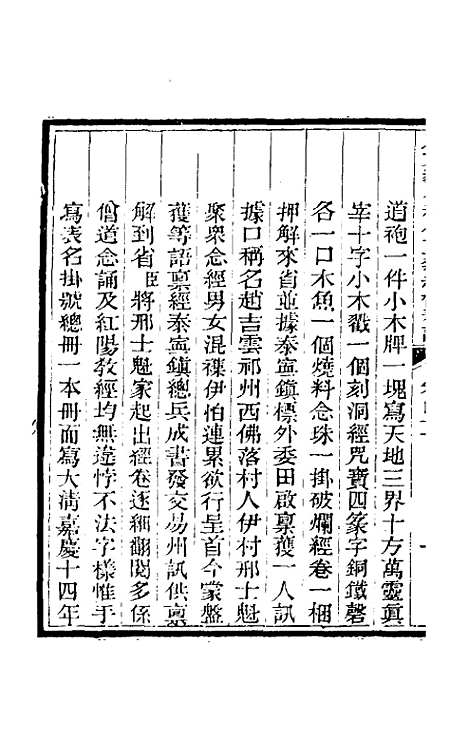 道袍一件小木牌一塊寫天地三界十方萬靈眞
宰十字小木戳一個刻洞經咒寶四篆字銅鐵磬
各一口木魚一個燒料念珠一掛破爛經卷一梱
押解來省並據泰寧鎮標外委田啟稟獲一人訊
據口稱名趙吉雲祁州西佛落村人伊村邢士魁
聚衆念經男女混襍伊怕連累欲行呈首今蒙盤
獲等語稟經泰寧鎮總兵成書發交易州訊供稟
解到省臣將邢士魁家起出經卷逐細翻閱多係
僧道念誦及紅陽教經均無違悖不法字樣惟手
寫表名掛號總冊一本冊面寫大淸嘉慶十四年